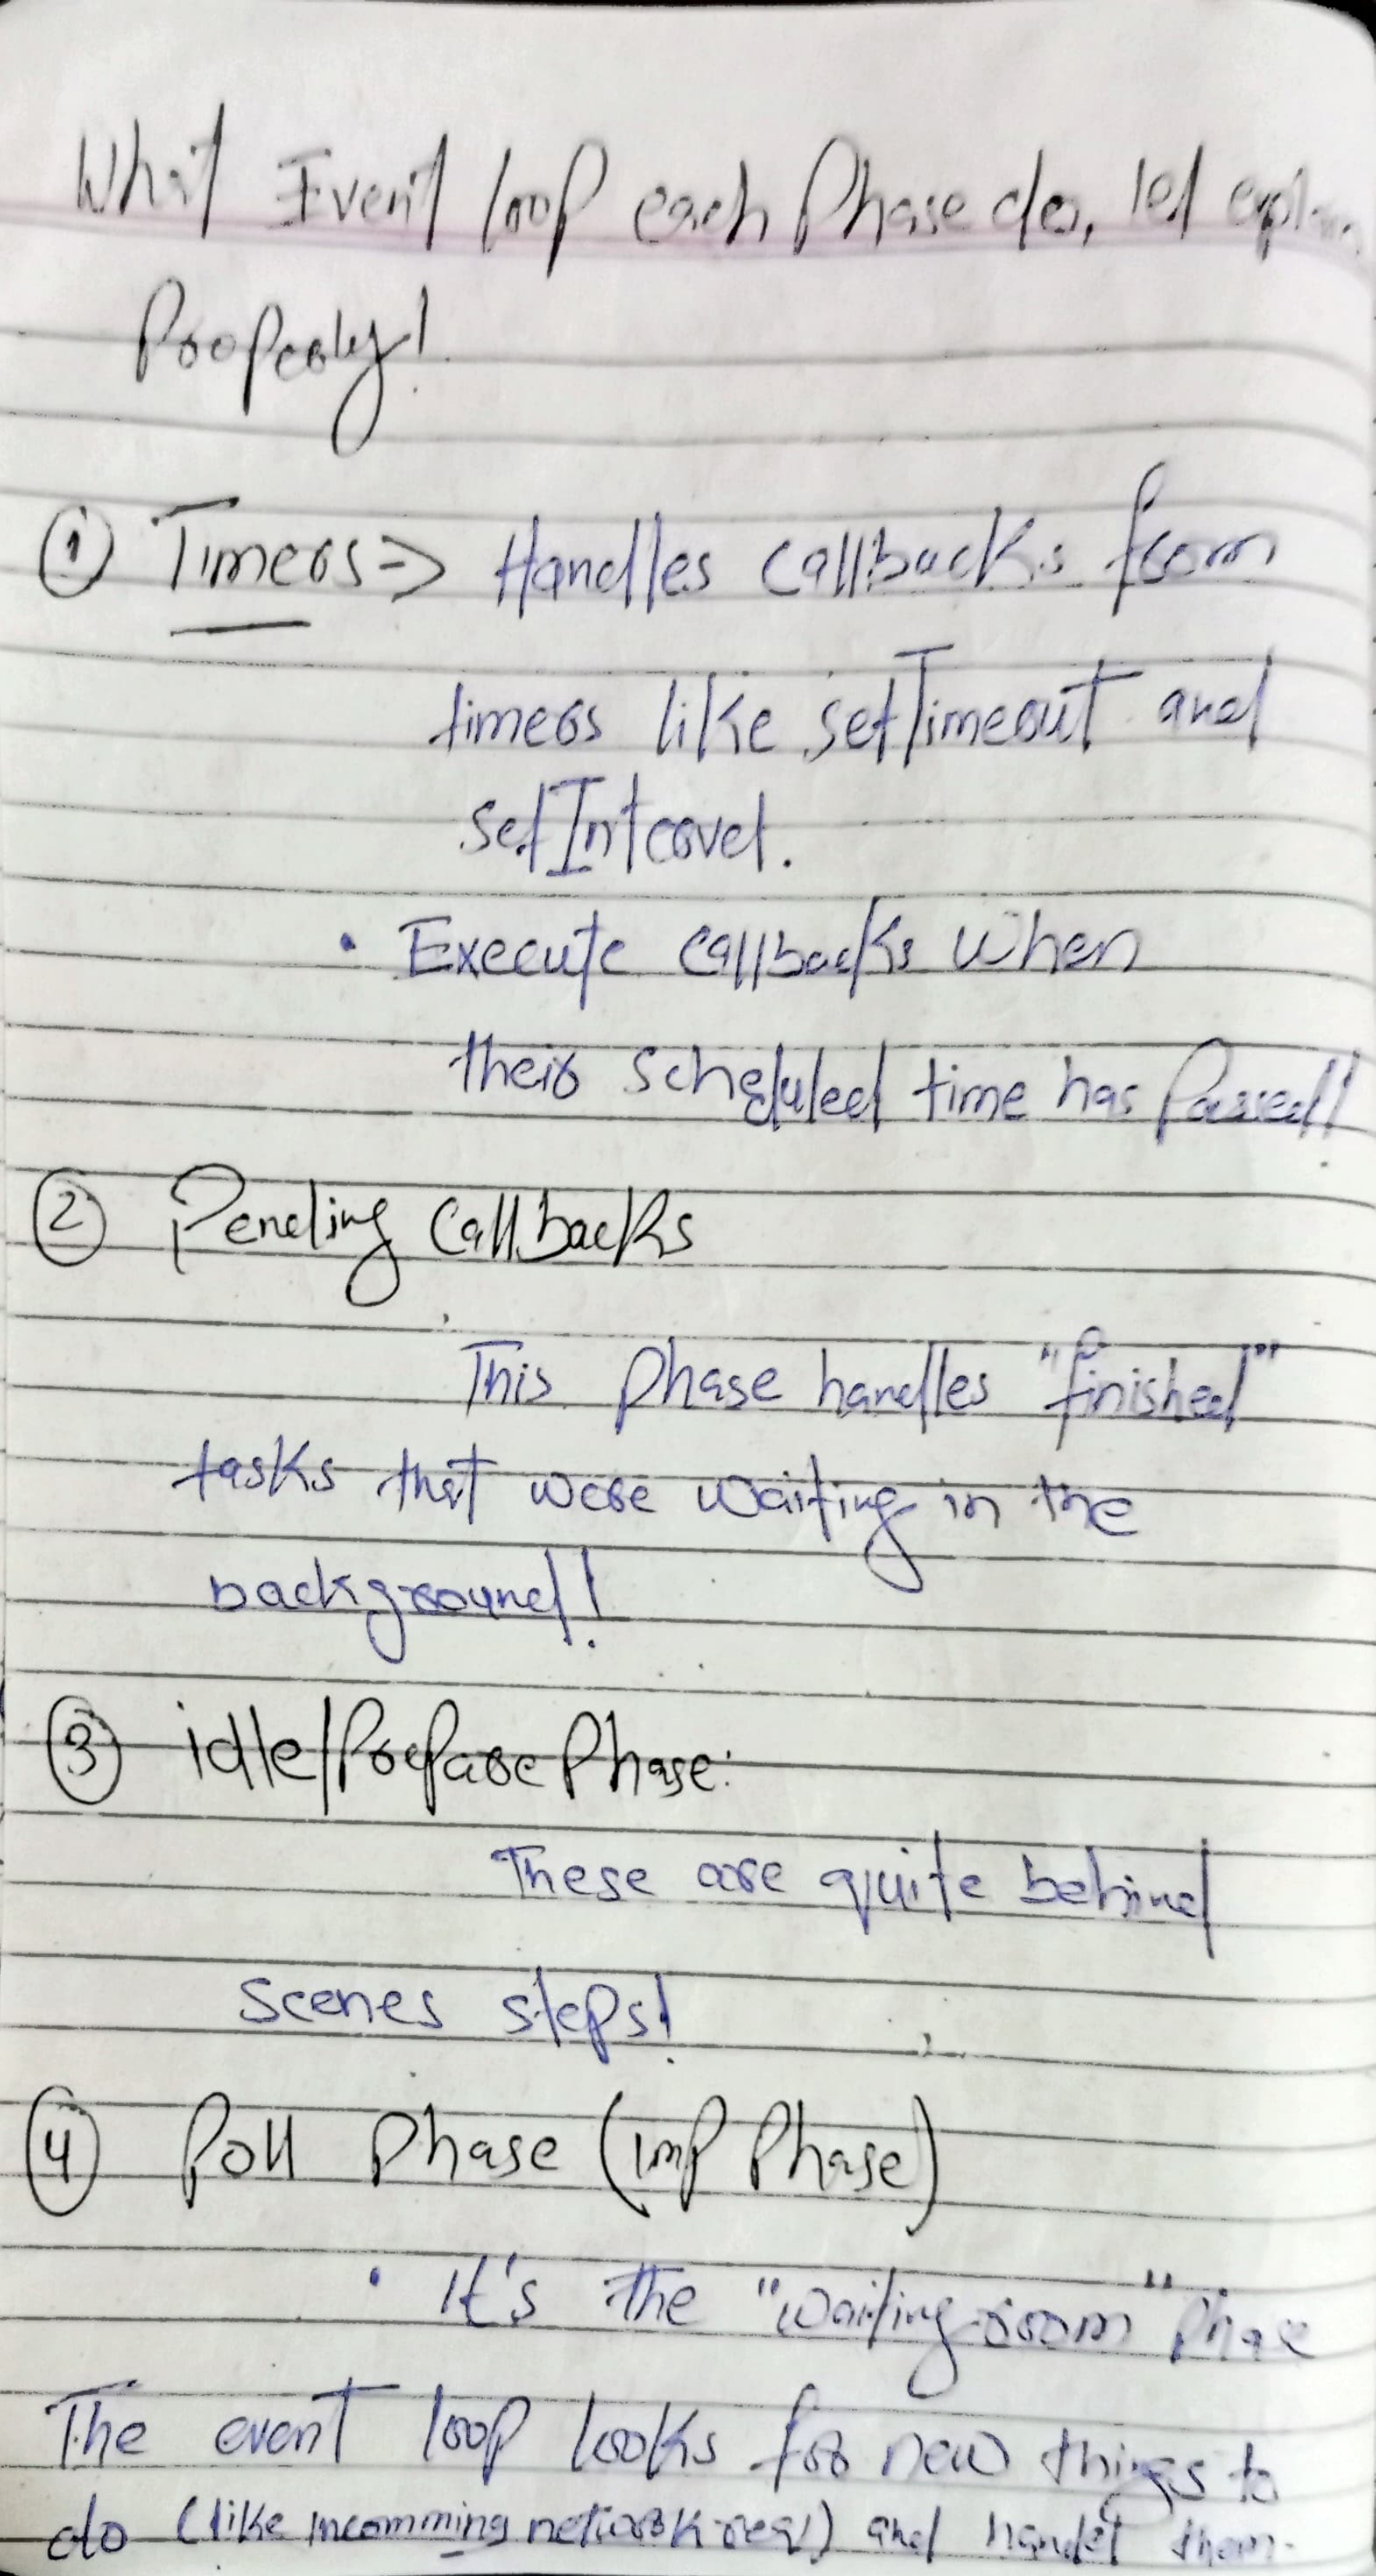 What Event loop each Phase do, let explain
Properly!
① Timers => Handles callbacks from
timers like setTimeout and
setInterval.
• Execute callbacks when
their scheduled time has Passed!
② Pending Callbacks
This Phase handles "finished"
tasks that were waiting in the
background!
③ idle/Prepare Phase:
These are quite behind
scenes steps!
④ Poll Phase (imp Phase)
• It's the "waiting room" Phase
The event loop looks for new things to
do (like incomming network req) and handel them.